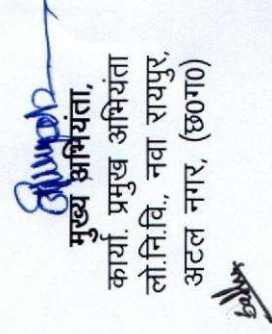 मुख्य अभियंता,
कार्या. प्रमुख अभियंता
लो.नि.वि., नवा रायपुर,
अटल नगर, (छ0ग0)